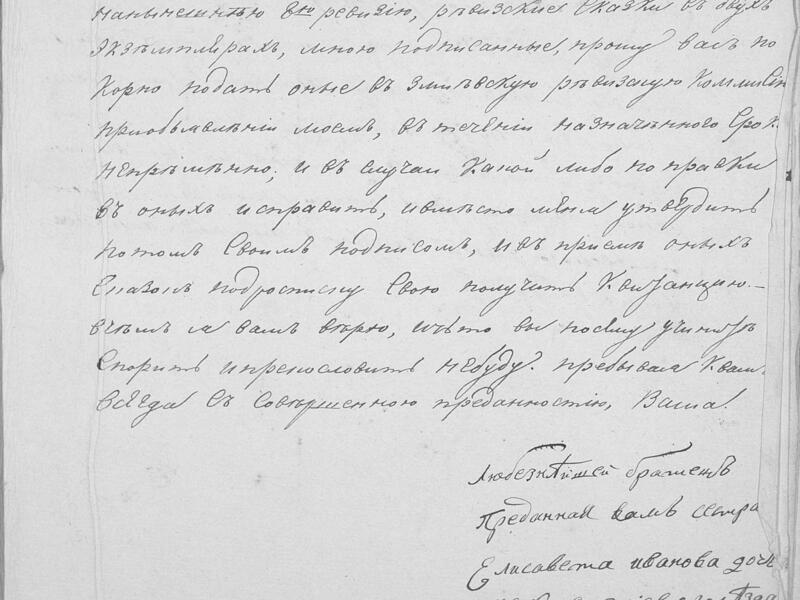 нанынешнюю 8ю ревизію, ревизские сказки въ двухъ
экземплярахъ, мною подписанные, прошу васъ по
корно подать оные въ змиевскую ревизскую Коммисію
приобъявленіи моемъ, въ течении назначенного Срока
непременно; и въ случаи какой либо поправки
въ оныхъ исправить, ивместо меня утвердить
потомъ Своимъ подписомъ, ивъ приеме оныхъ
Сказокъ подросписку Свою получить Квитанцию.—
вчемъ я вамъ верю, ичьто вы посему учините
Спорить ипрекословить небуду. пребывая Квамъ
всегда съ совершенною преданностію, Ваша.
Любезнѣйшей братецъ
Преданная вамъ сестра
Елисавета иванова дочь